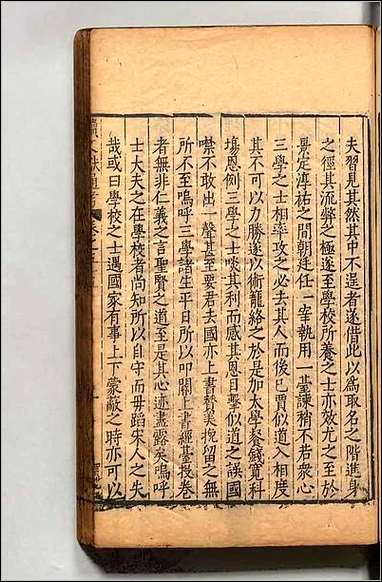 夫習見其然其中不逞者遂借此以爲取名之階進身
之徑其流弊之極遂至學校所養之士亦效尤之至於
景定淳祐之間朝廷任一宰執用一臺諫稍不若衆心
三學之士相率攻之必去其人而後已賈似道入相度
其不可以力勝遂以術籠絡之於是加太學餐錢寬科
塲恩例三學之士啖其利而感其恩目擊似道之誤國
噤不敢出一聲甚至要君去國亦上書賛美挽留之無
所不至嗚呼三學諸生平日所以叩閽上書經臺投卷
者無非仁義之言聖賢之道至是其心迹盡露矣嗚呼
士大夫之在學校者尚知所以自守而毋蹈宋人之失
哉或曰學校之士遇國家有事上下蒙蔽之時亦可以
續文獻通考 卷之